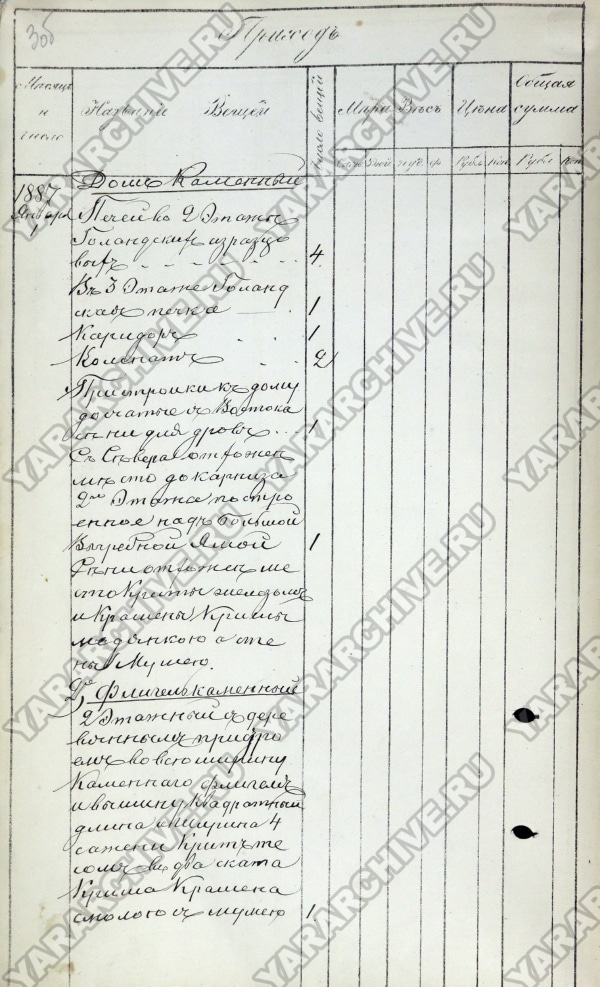 306
Приходъ
Мѣсяцъ
и
число
Названіе Вещей
Число вещей
Мѣра
Вѣсъ
Цѣна
Общая
сумма
пуд. ф.
Рубл. коп.
Рубл. коп.
1887
Января
1
Домъ Каменный
Печей во 2 Этажѣ
Голандскихъ изразцо
выхъ 4
Въ 3 Этажѣ Голанд
ская печка 1
Каридоръ 1
Комнатъ 2
Пристройки къ дому
досчатые съ Востока
сѣни для дровъ 1
Съ Сѣвера отхожее
мѣсто до карниза
2го Этажа построе
енное надъ большой
Выгребной Ямой 1
Сѣни отхожее ме
сто Крыты желѣзомъ
и Крашены Крыши
медянкою а сте
ны Мумею.
2е, Флигель каменный
2 Этажный съ дере
вяннымъ придѣло
емъ во всю ширину
Каменнаго флигеля
и вышину Квадратный
длина и ширина 4
сажени Крытъ те
сомъ въ два ската
Крыша Крашена
смолою съ мумею 1
YARARCHIVE.RU